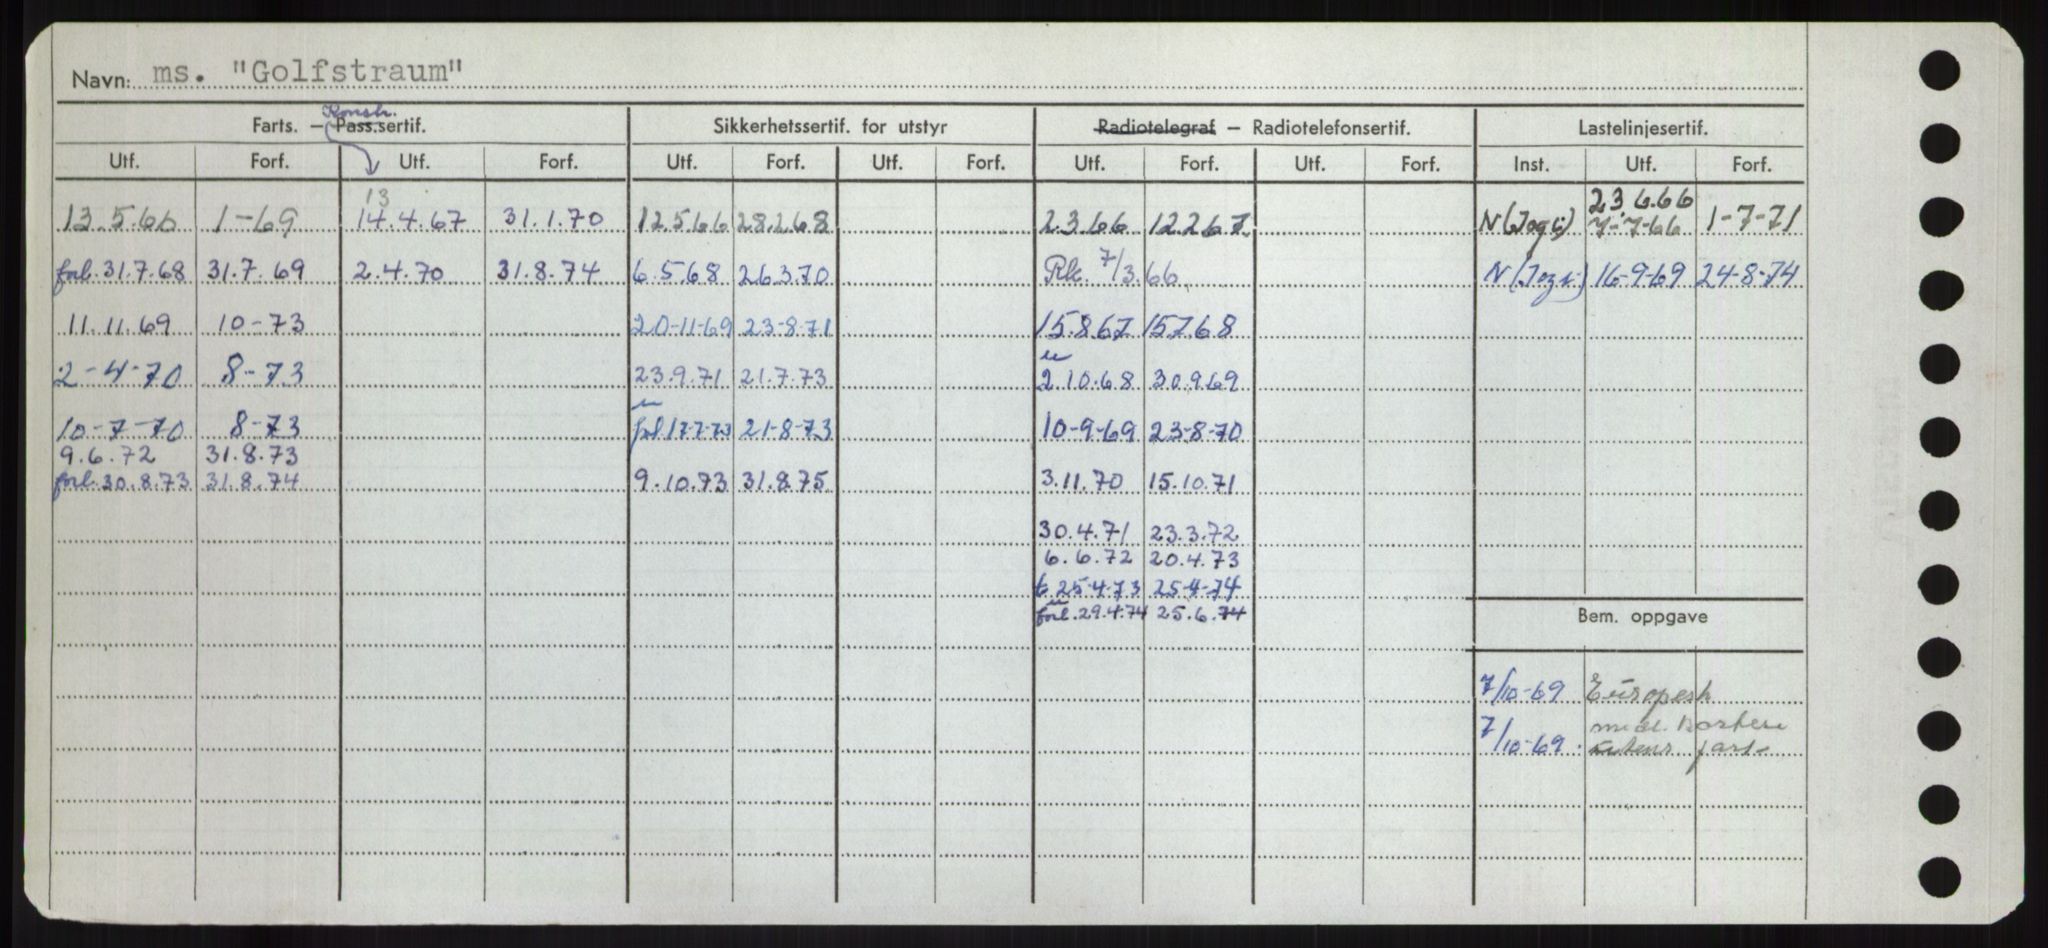 Navn: ms. "Golfstraum"
Konstr.
Farts. – Pass.sertif. Sikkerhetssertif. for utstyr Radiotelegraf – Radiotelefonsertif. Lastelinjesertif.
Utf. Forf. Utf. Forf. Utf. Forf. Utf. Forf. Utf. Forf. Utf. Forf. Inst. Utf. Forf.
13 23.6.66
13.5.66 1-69 14.4.67 31.1.70 12.5.66 28.2.68 2.3.66 12.2.67 N 7-7-66 1-7-71
forl. 31.7.68 31.7.69 2.4.70 31.8.74 6.5.68 26.3.70 Rk. 7/3.66 N 16-9-69 24-8-74
11.11.69 10-73 20-11-69 23-8-71 15.8.67 15.7.68
2-4-70 8-73 23.9.71 21.7.73 2.10.68 30.9.69
10-7-70 8-73 forl 17-7-73 21-8-73 10-9-69 23-8-70
9.6.72 31.8.73
forl. 30.8.73 31.8.74 9.10.73 31.8.75 3.11.70 15.10.71
30.4.71 23.3.72
6.6.72 20.4.73
t 25-4-73 25-4-74
forl. 29.4.74 25.6.74
Bem. oppgave
7/10-69 Europesk
7/10-69 fart